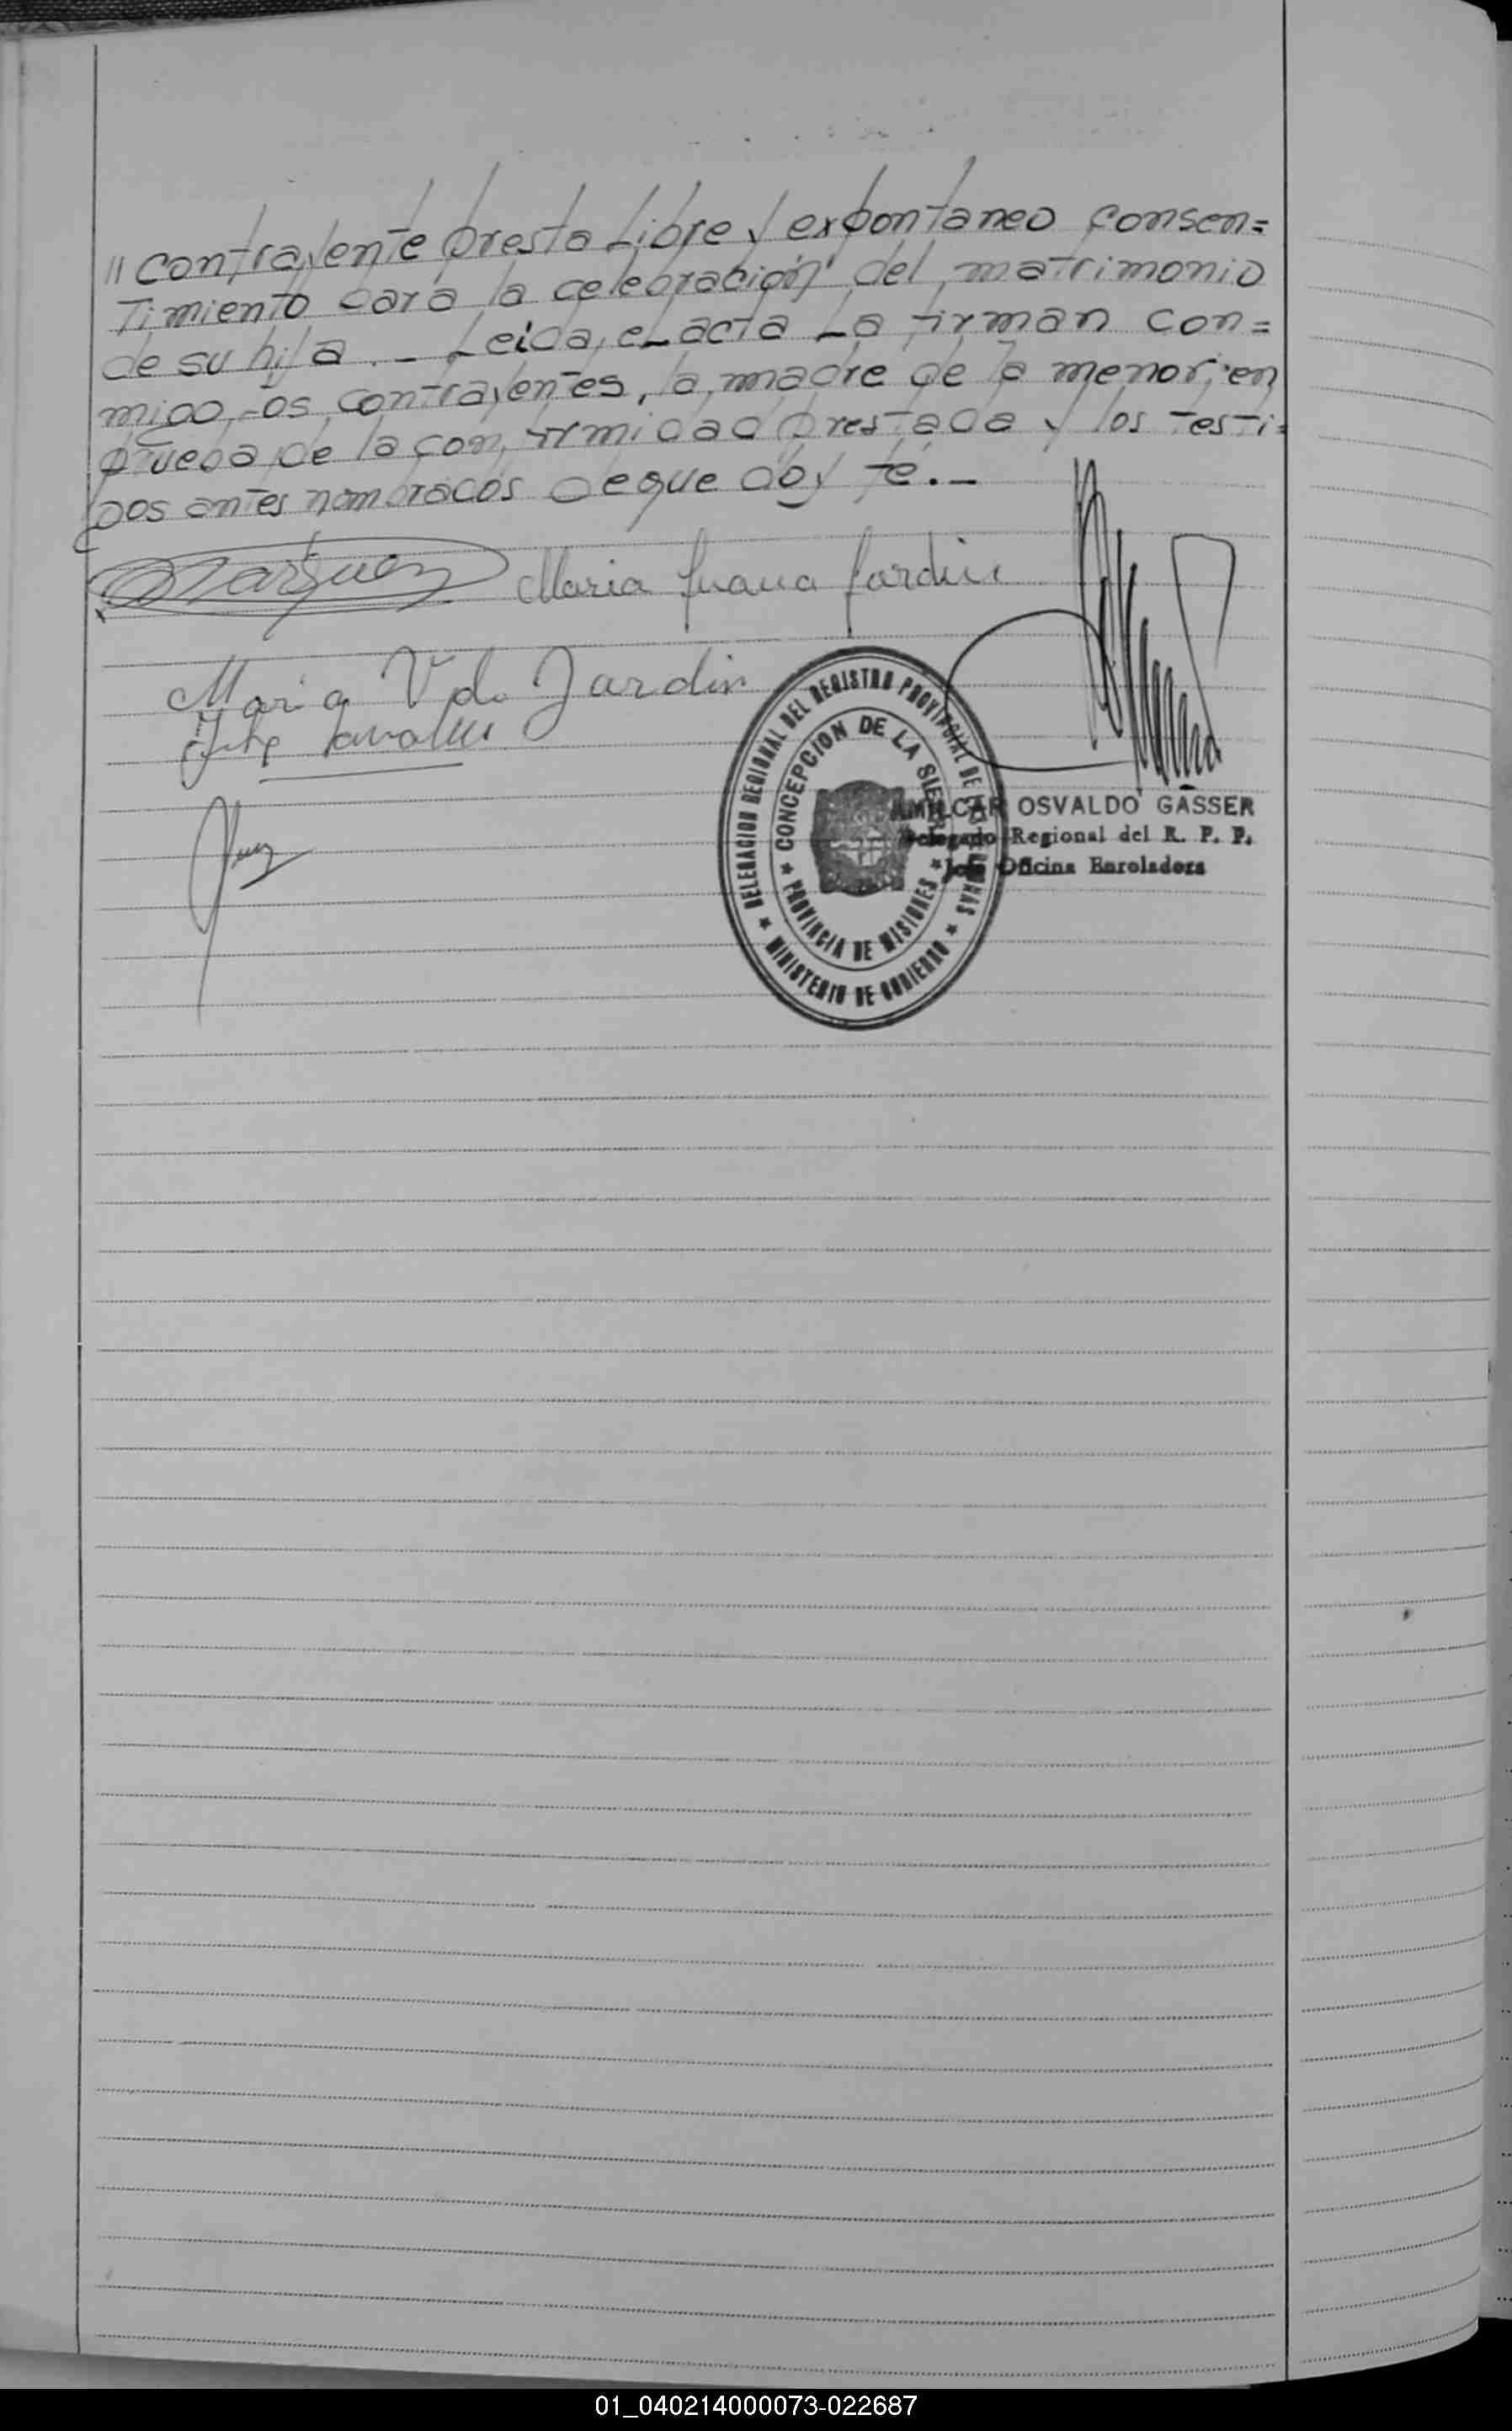 " contrayente presta libre y expontaneo consen=
timiento para la celebración del matrimonio
de su hija. - Leida, el acta la firman con=
migo los contrayentes, la madre de la menor, en
prueba de la conformidad prestada y los testi=
gos antes nombrados de que doy fé. -
Marquez Maria Juana Jardin
Maria V de Jardin
DELEGACION REGIONAL DEL REGISTRO PROVINCIAL DE LAS PERSONAS
CONCEPCION DE LA SIERRA
PROVINCIA DE MISIONES
MINISTERIO DE GOBIERNO
AMILCAR OSVALDO GASSER
Delegado Regional del R. P. P.
Jefe Oficina Enroladora
01_040214000073-022687